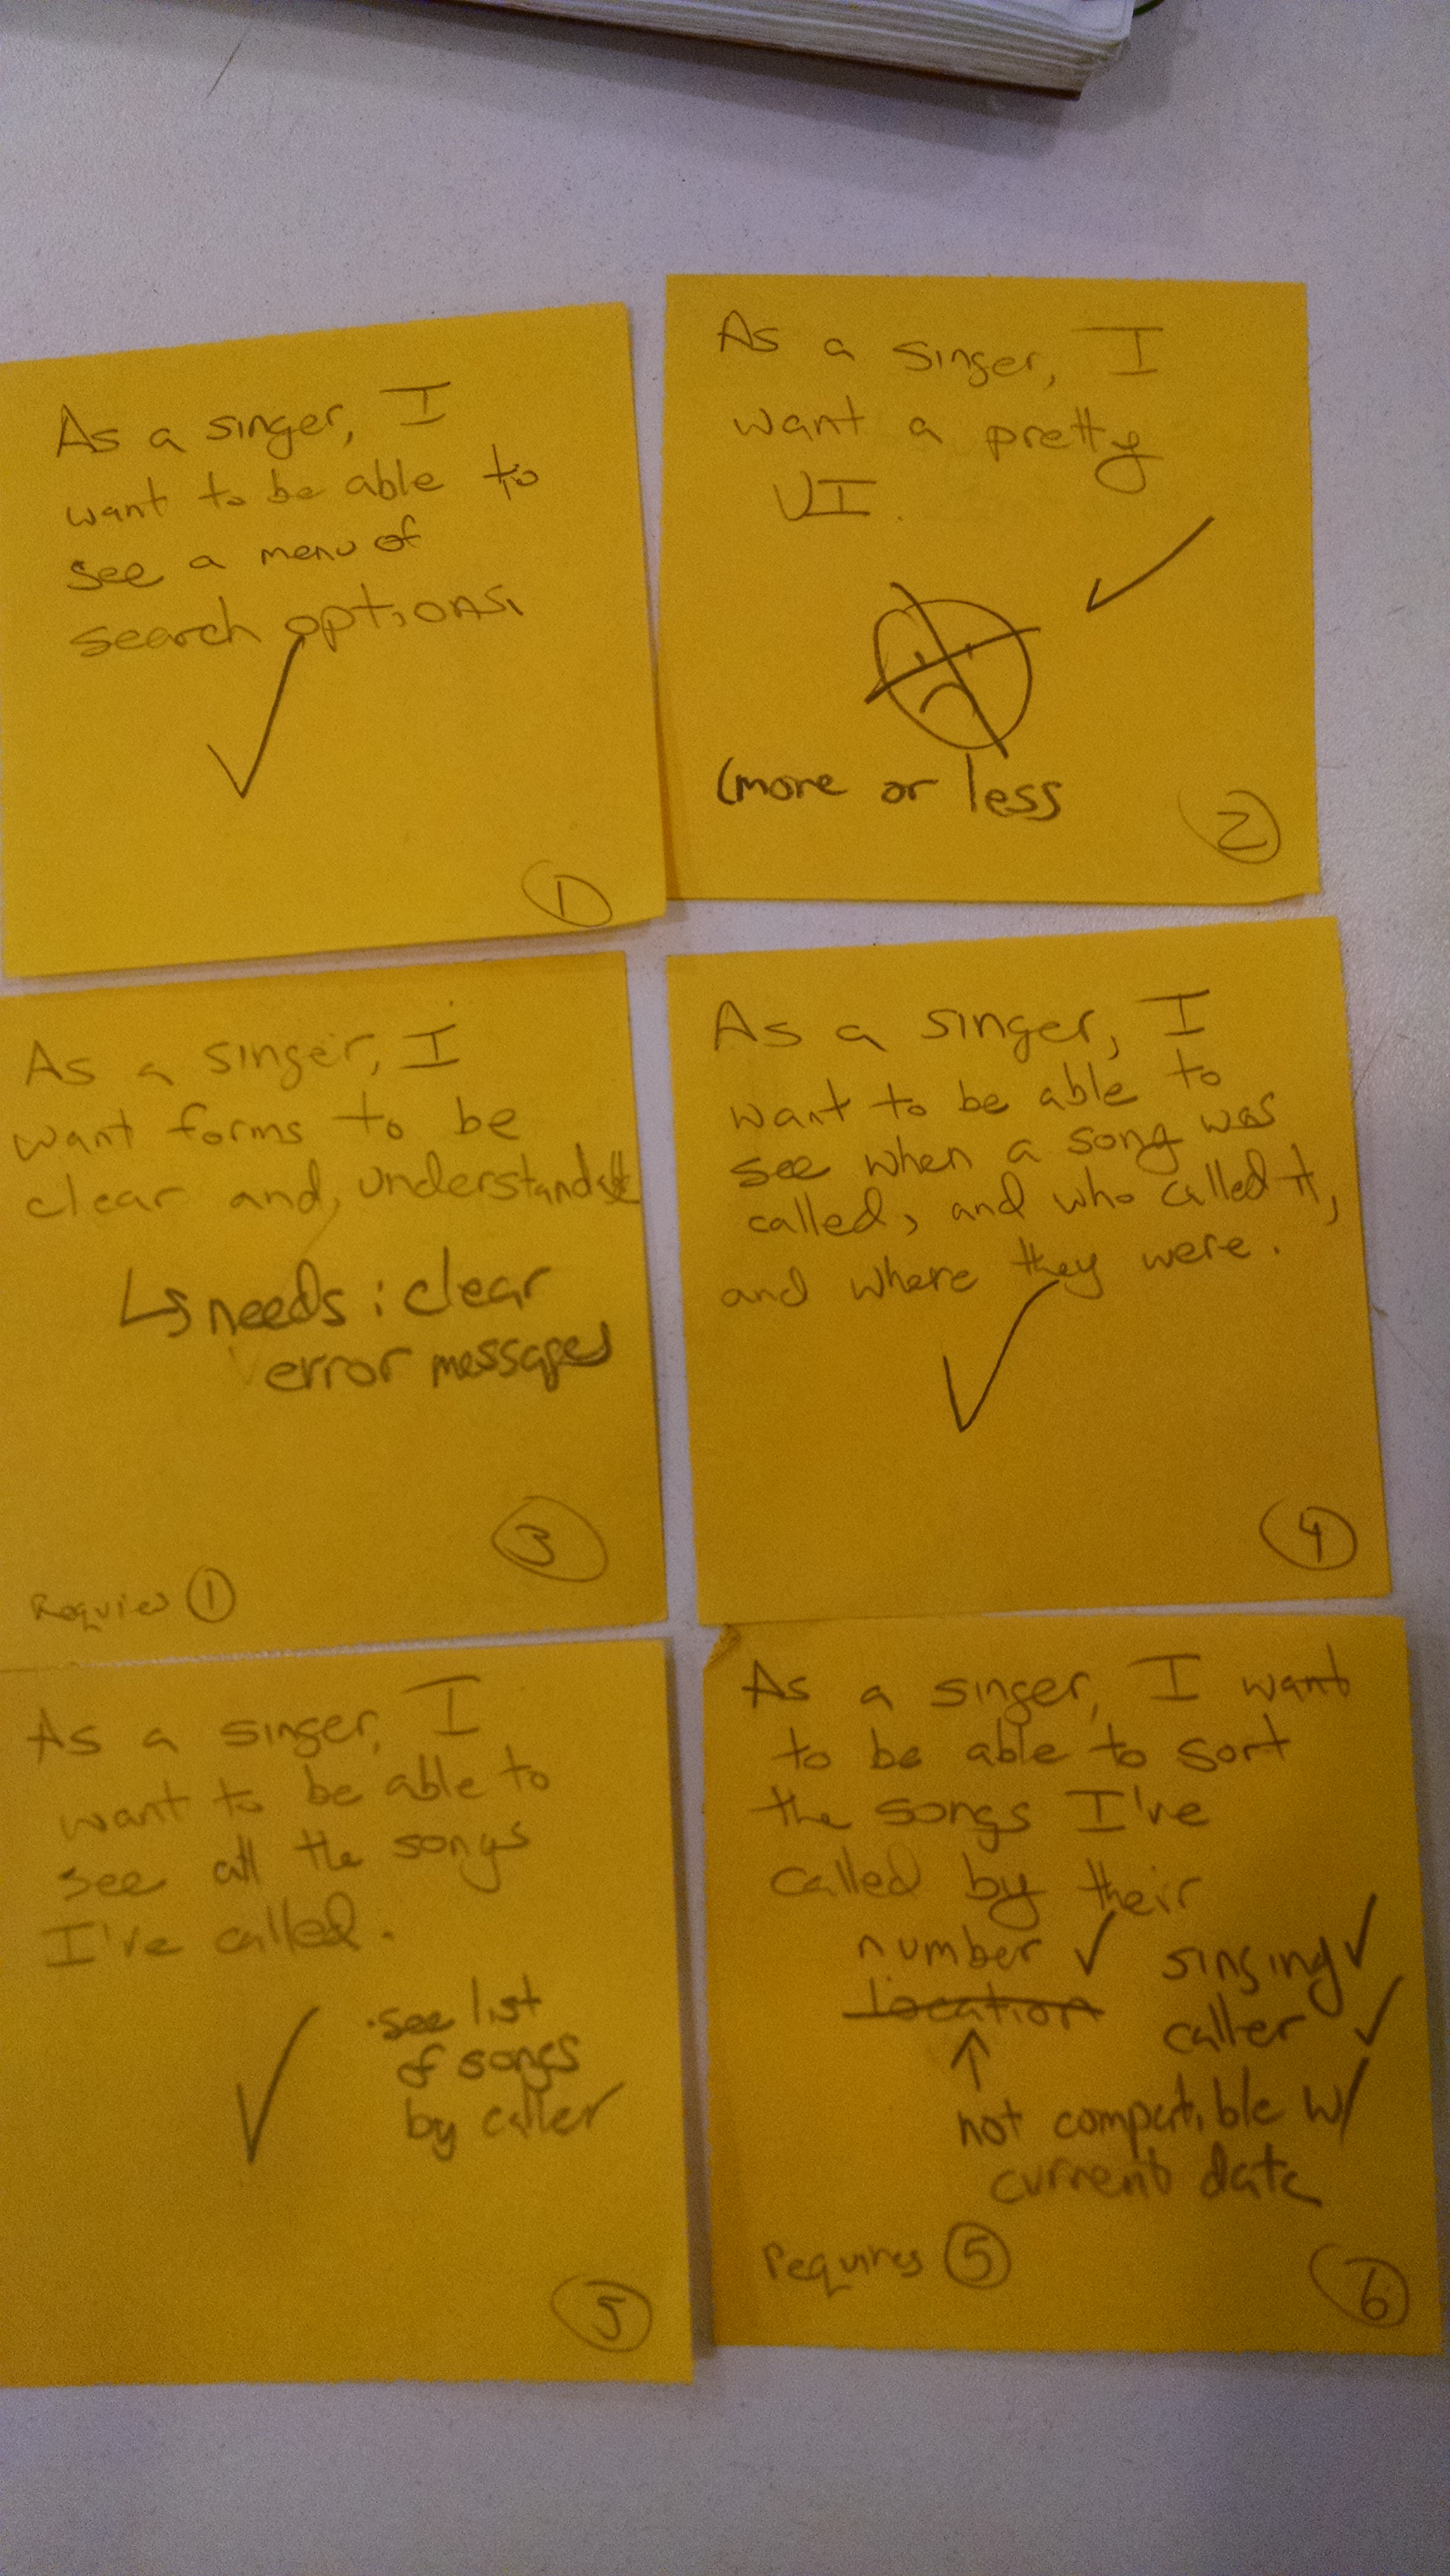 As a singer, I
want to be able to
see a menu of
search options.
①
As a singer, I
want a pretty
UI.
(more or less
②
As a singer, I
want forms to be
clear and understandable
↳ needs: clear
error messages
③
Requires ①
As a singer, I
want to be able to
see when a song was
called, and who called it,
and where they were.
④
As a singer, I
want to be able to
see all the songs
I've called.
• see list
of songs
by caller
⑤
As a singer, I want
to be able to sort
the songs I've
called by their
number ✓
location
↑
singing ✓
caller ✓
not compatible w/
current data
Requires ⑤
⑥